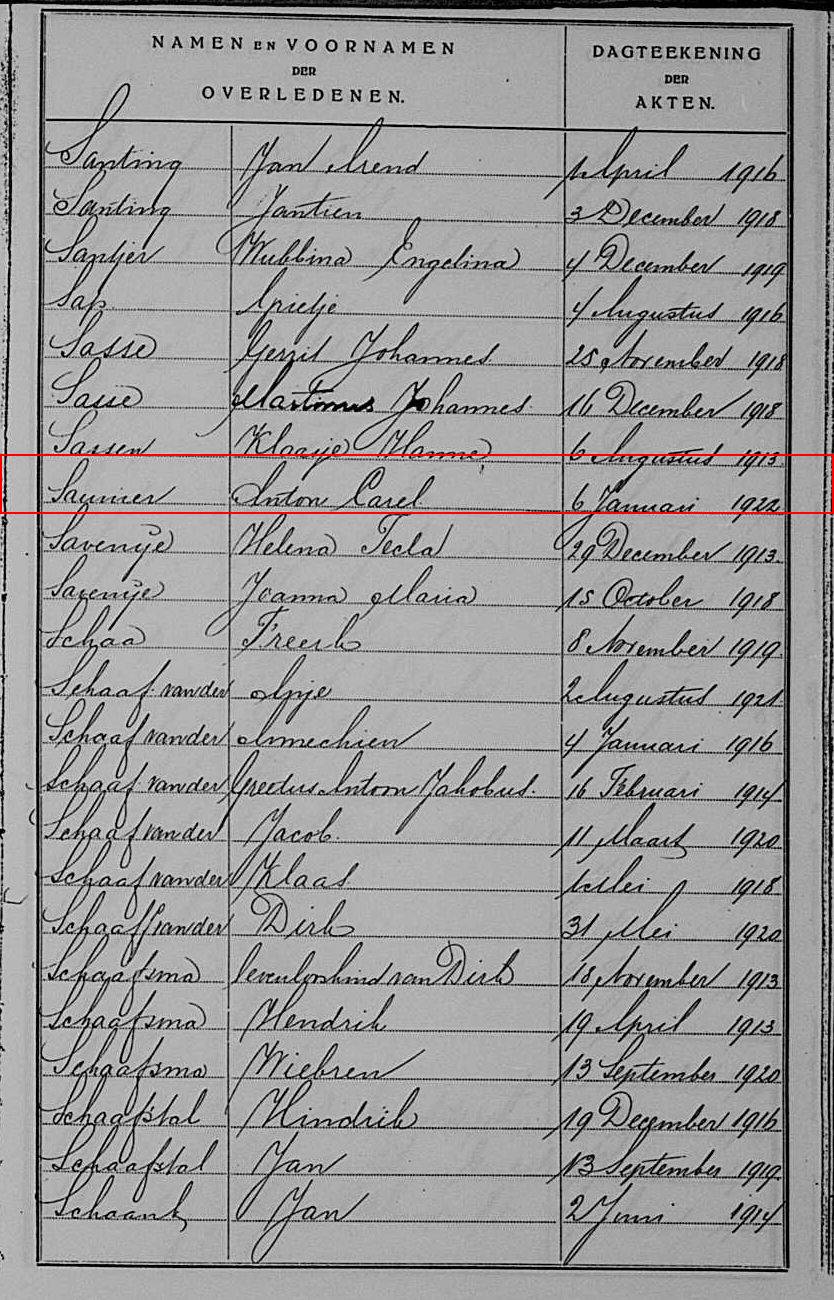 NAMEN EN VOORNAMEN
DER
OVERLEDENEN.
DAGTEEKENING
DER
AKTEN.
Santing Jan Arend 1 April 1916
Santing Jantien 3 December 1918
Santjer Wubbina Engelina 4 December 1919
Sap Grietje 4 Augustus 1916
Sasse Gerrit Johannes 25 November 1918
Sasse Martinus Johannes 16 December 1918
Sassen Klaasje Hanne 6 Augustus 1913
Saunier Anton Carel 6 Januari 1922
Savenije Helena Tecla 29 December 1913
Savenije Joanna Maria 15 October 1918
Schaa Freerk 8 November 1919
Schaaf van der 2 Augustus 1921
Schaaf van der Annechien 4 Januari 1916
Schaaf van der Antoon Jakobus. 16 Februari 1914
Schaaf van der Jacob. 11 Maart 1920
Schaaf van der Klaas 1 Mei 1918
Schaaff van der Dirk 31 Mei 1920
Schaafsma levenloos kind van Dirk 18 November 1913
Schaafsma Hendrik 19 April 1913
Schaafsma Wiebren 13 September 1920
Schaafstal Hindrik 19 December 1916
Schaafstal Jan 13 September 1919
Schaank Jan 2 Juni 1914